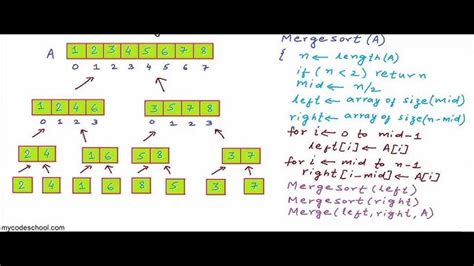 Mergesort (A)
A
1 2 3 4 5 6 7 8
0 1 2 3 4 5 6 7
1 2 4 6
0 1 2 3
3 5 7 8
0 1 2 3
2 4 1 6 5 8 3 7
2 4 1 6 8 5 3 7
{ n ← length(A)
if (n < 2) return
mid ← n/2
left ← array of size(mid)
right ← array of size(n-mid)
for i ← 0 to mid-1
left[i] ← A[i]
for i ← mid to n-1
right[i-mid] ← A[i]
Mergesort (left)
Mergesort (right)
Merge(left, right, A)
mycodeschool.com